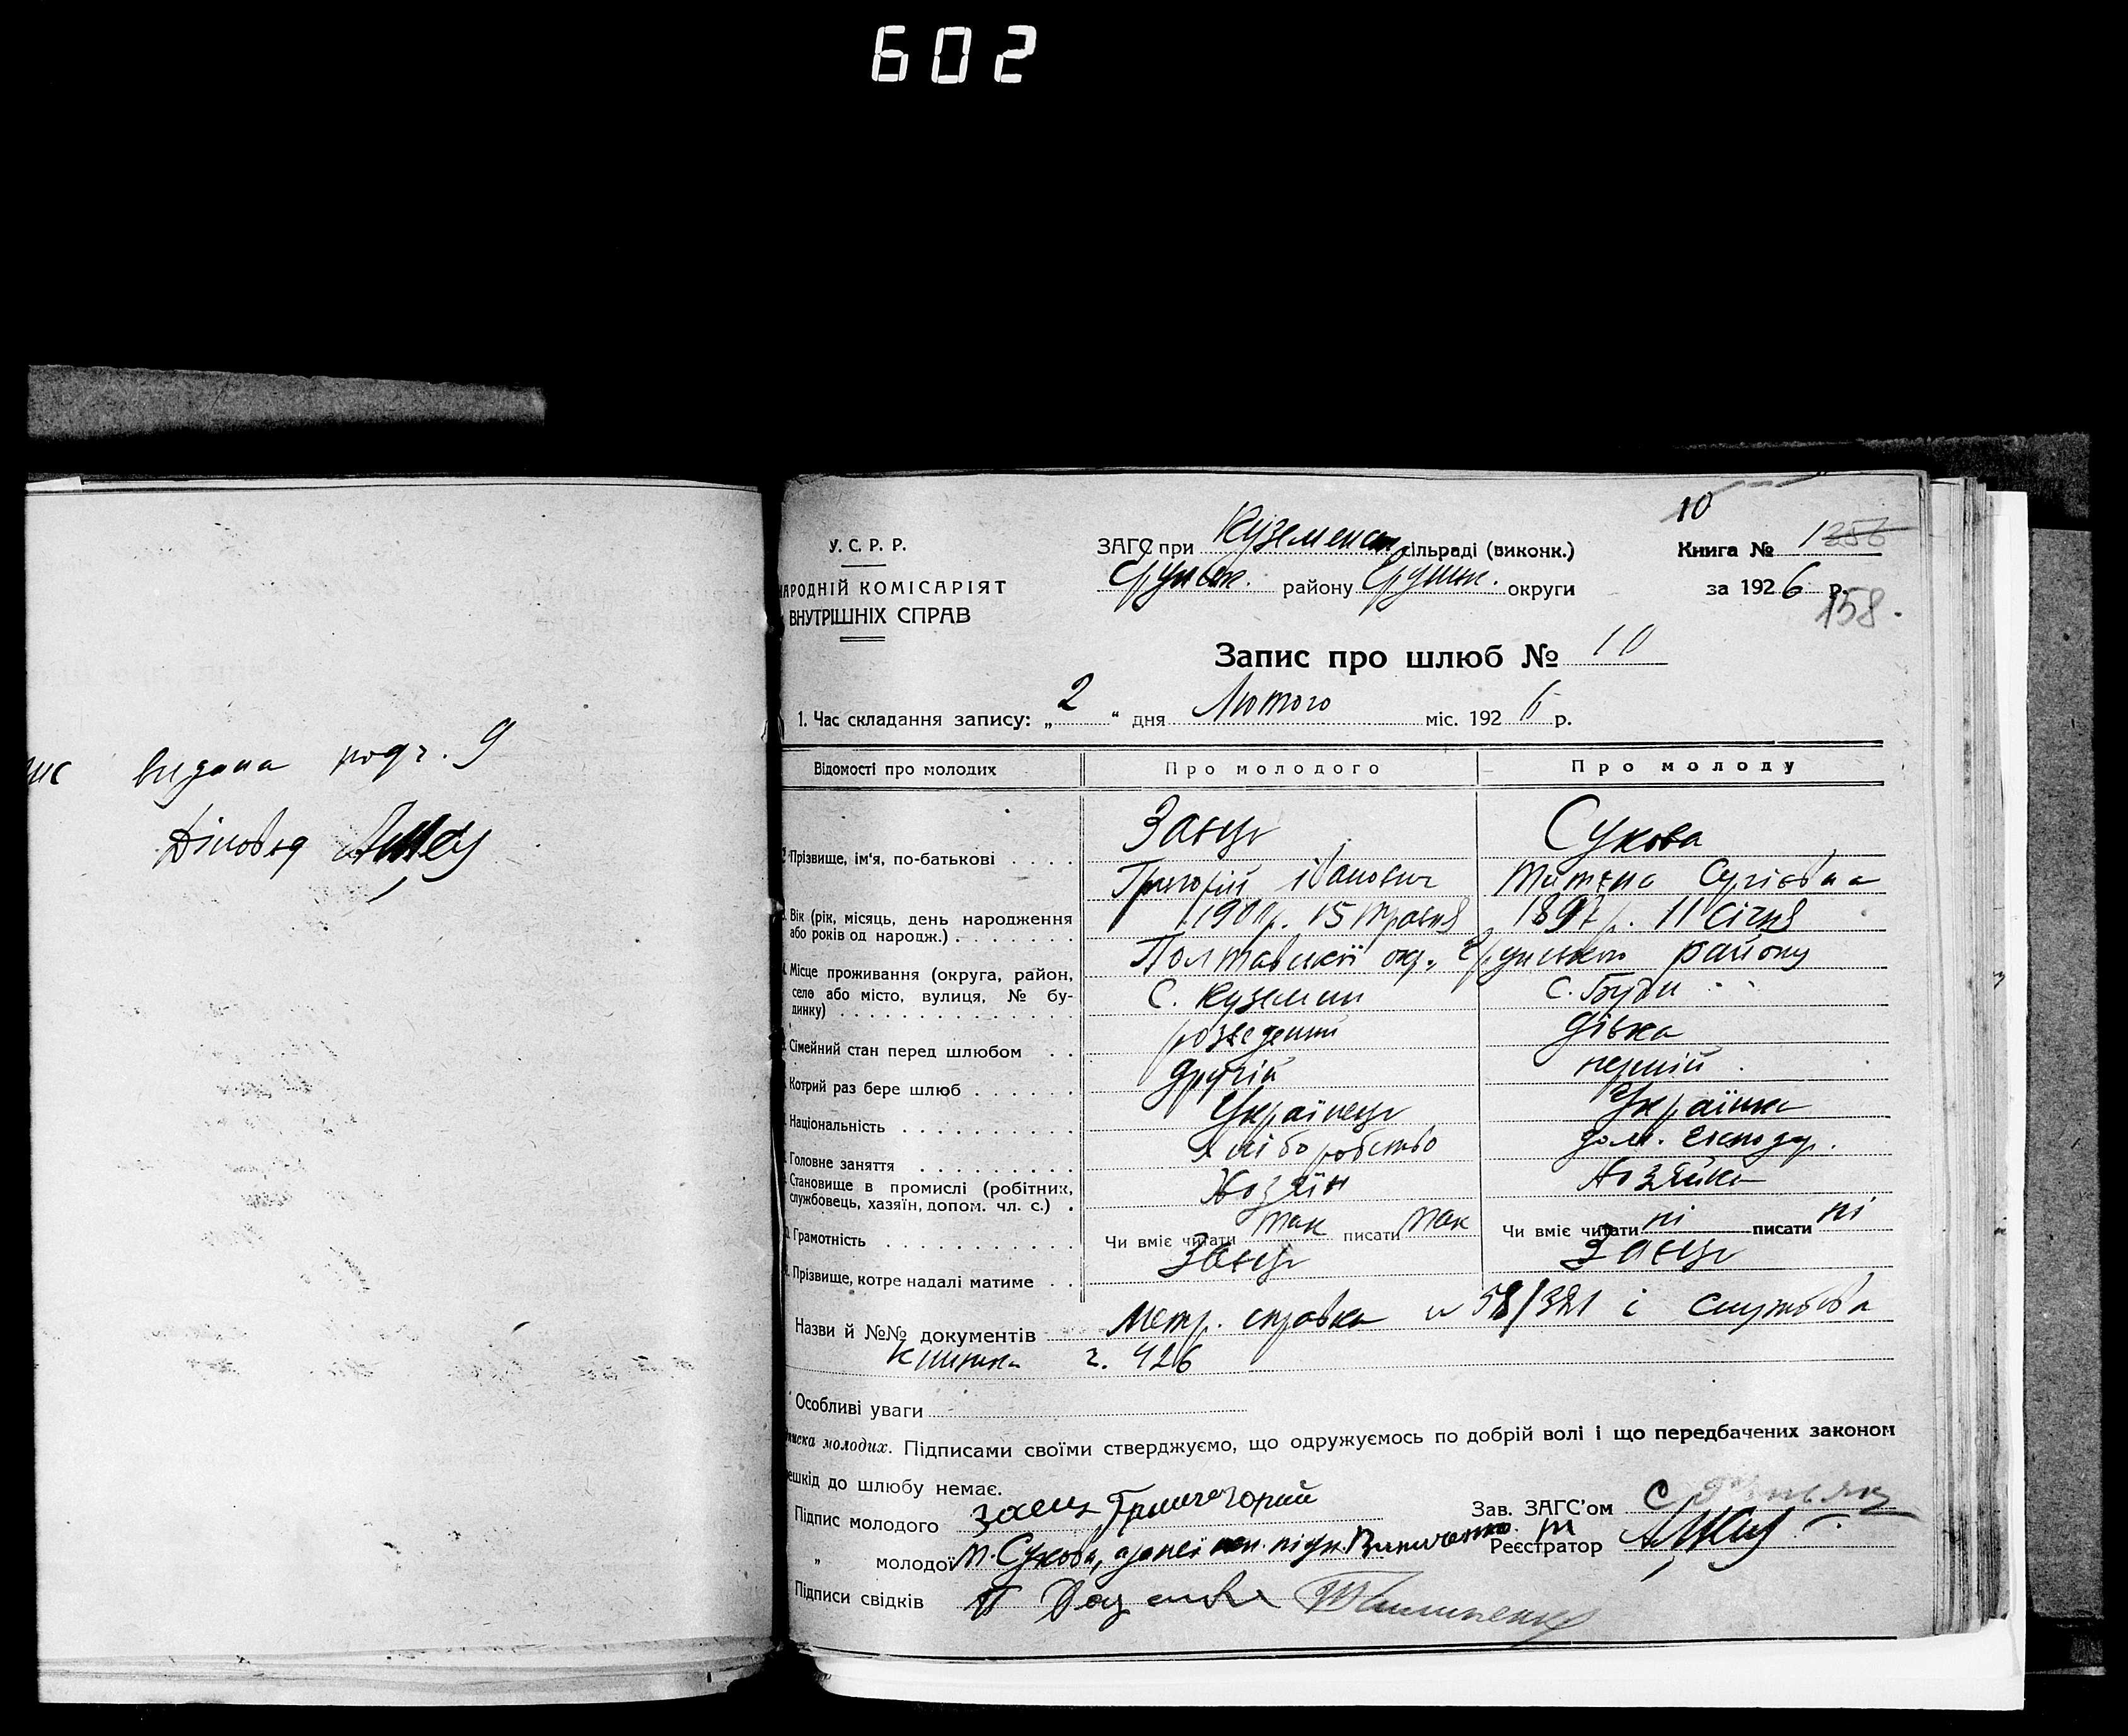 602
видана подг. 9
Діловод
10
У. С. Р. Р.
НАРОДНІЙ КОМІСАРІЯТ
ВНУТРІШНІХ СПРАВ
ЗАГС при Куземенск сільраді (виконк.)
Грунськ. району Грунськ. округи
Книга № 1 256
за 1926 р.
158.
Запис про шлюб № 10
1. Час складання запису: „2“ дня Лютого міс. 1926 р.
Відомості про молодих Про молодого Про молоду
Прізвище, ім'я, по-батькові . . . . Заєць Сукова
Григорій Іванович Мотина Сергієвна
Вік (рік, місяць, день народження або років од народж.) . . . . . . . 1901 р. 15 травня 1897 р. 11 Січня
Полтавської окр., Грунського району
Місце проживання (округа, район, село або місто, вулиця, № будинку) . . . . . . . . . . . . . . С. Куземин С. Буди
Сімейний стан перед шлюбом . . розведений дівка
Котрий раз бере шлюб . . . . . . другій перший
Національність . . . . . . . . . . Українець Українка
Головне заняття . . . . . . . . . хліборобство дом. господар.
Становище в промислі (робітник, службовець, хазяїн, допом. чл. с.) . Хозяїн Хозяйка
Грамотність . . . . . . . . . . . Чи вміє читати так писати так Чи вміє читати ні писати ні
Прізвище, котре надалі матиме . . Заєць Заєць
Назви й №№ документів Метр. справка № 58/321 і службова
книжка ч. 426
Особливі уваги
писка молодих. Підписами своїми стверджуємо, що одружуємось по добрій волі і що передбачених законом
решкід до шлюбу немає.
Підпис молодого Заец Григорий Зав. ЗАГС'ом
„ молодої М. Сукова, а за неї неп. підп. Реєстратор
Підписи свідків